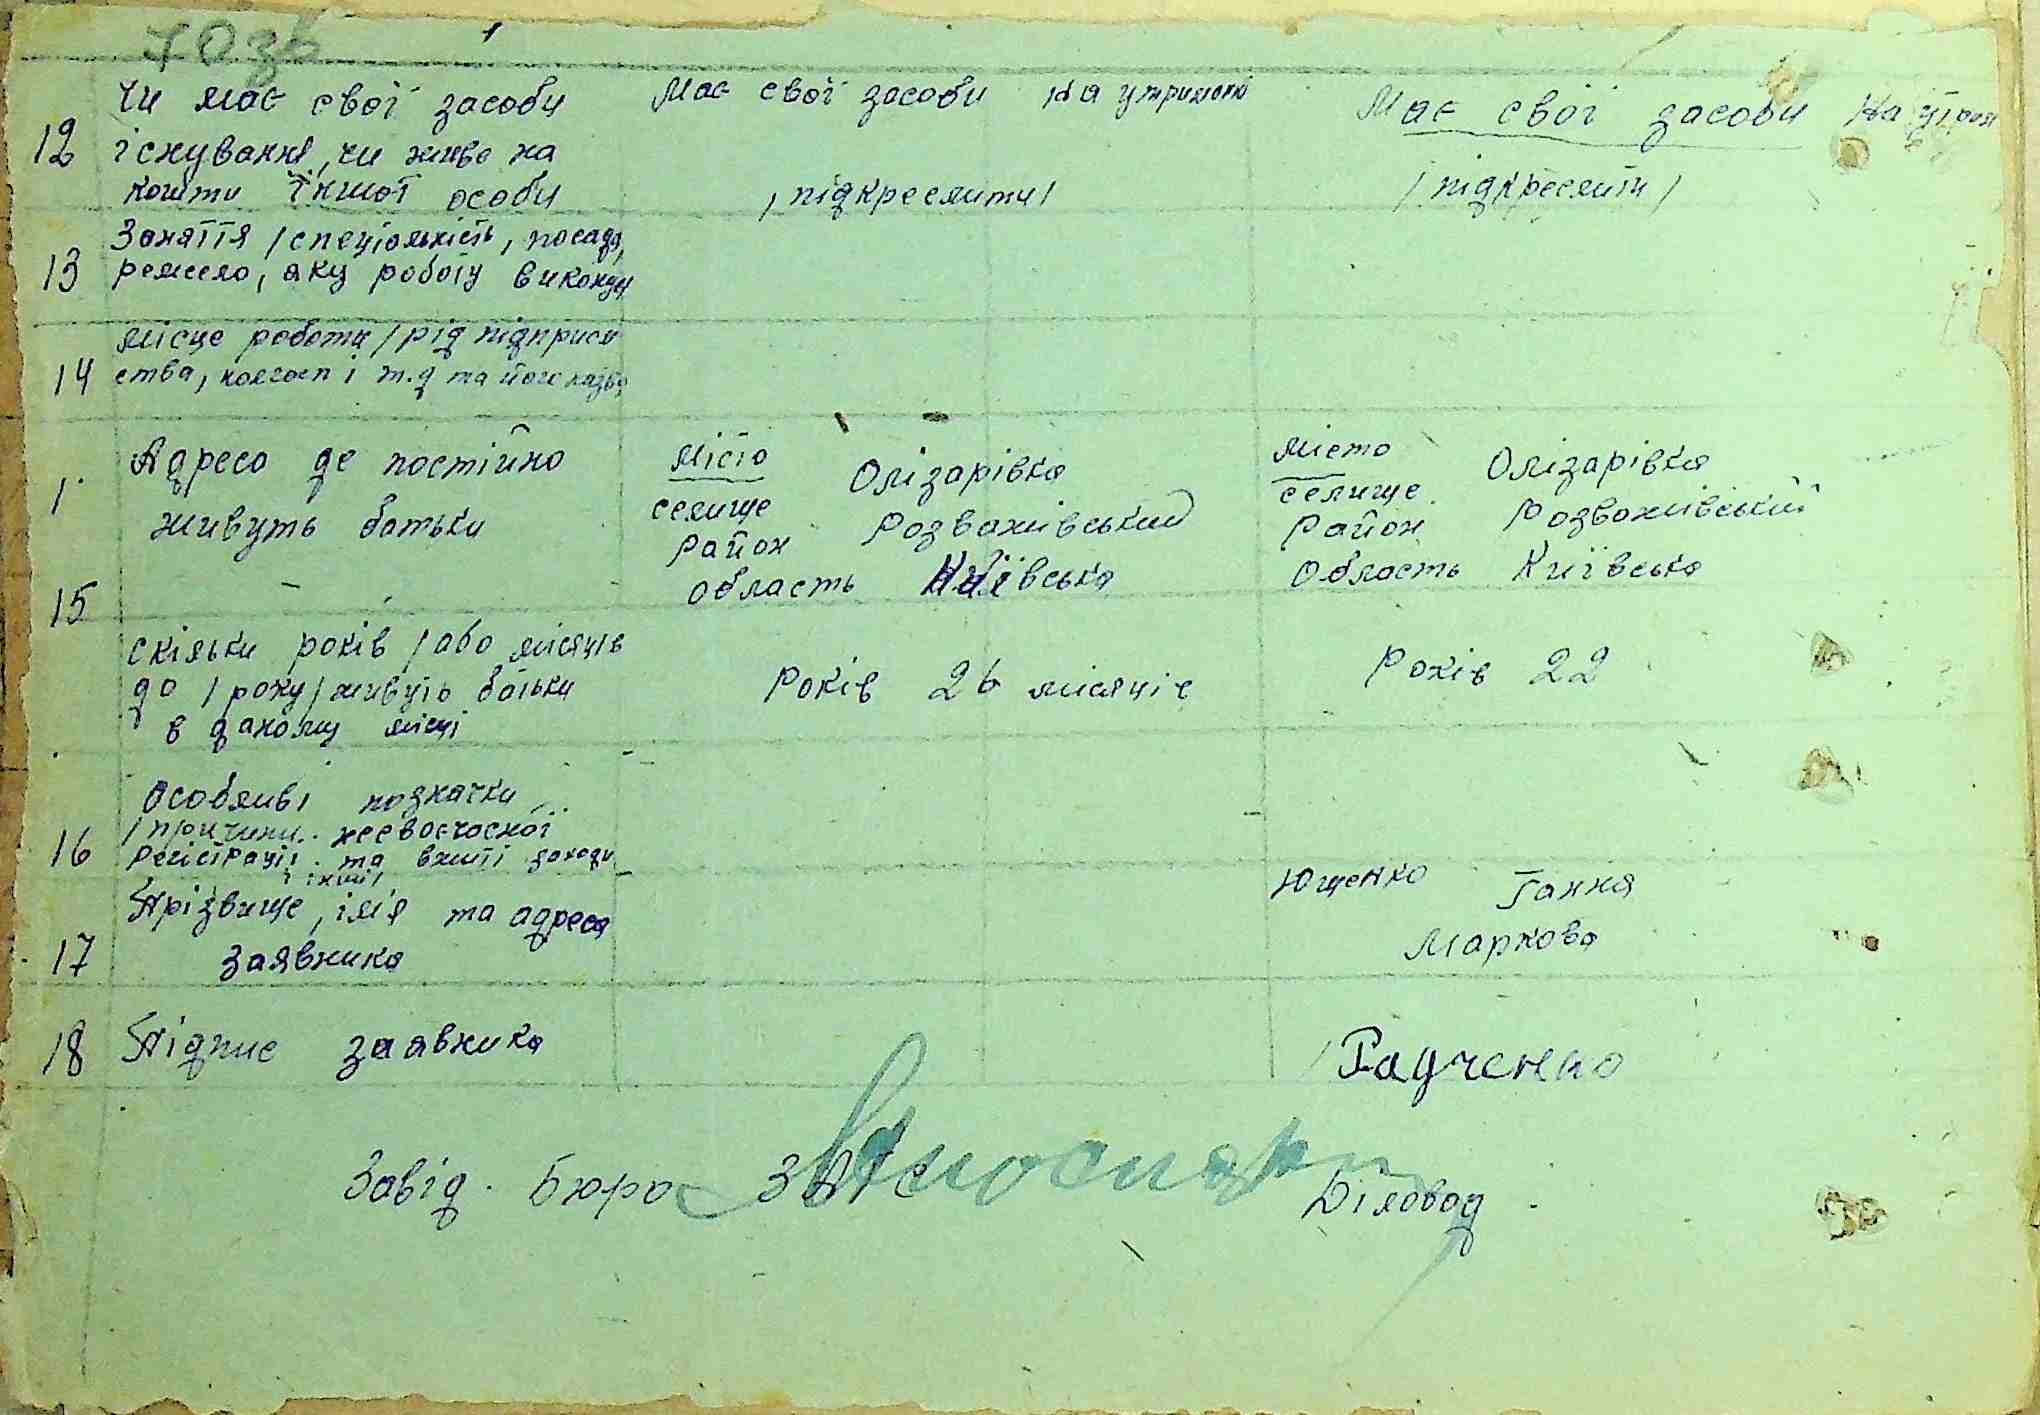 12 Чи має свої засоби
існування, чи живе на
кошти їншої особи
Має свої засоби на утриманні
/підкреслити/
Має свої засоби на утрим
/підкреслити/
13 Заняття /спеціальність, посада,
ремесло, яку роботу виконує
14 місце роботи /рід підприєм
ства, колгосп і т.д та його назва
1 Адреса де постійно
живуть батьки
15
місто Олізарівка
селище
район Розважівський
область Київська
місто Олізарівка
селище
район Розважівський
область Київська
скільки років /або місяців
до /року/ живуть батьки
в даному місці
Років 26 місяців
Років 22
16 Особливі позначки
/причини несвоєчасної
регістрації та вжиті заходи
і інші/
17 Прізвище, ім'я та адреса
заявника
Ющенко Ганна
Маркова
18 Підпис заявника
Радченко
Завід. Бюро ЗАГС
Діловод